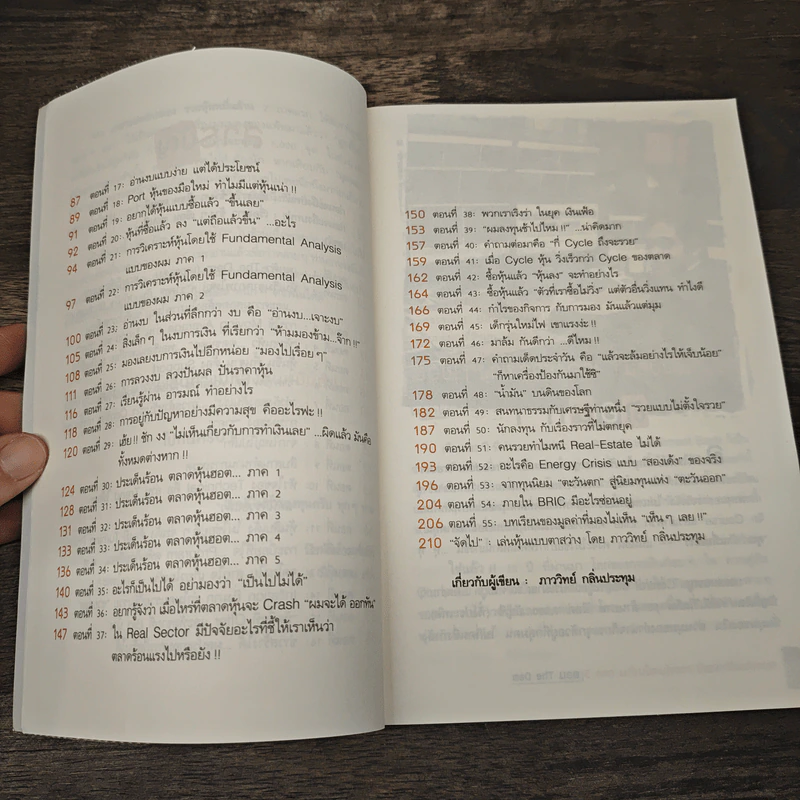 สารบัญ
87 ตอนที่ 17: อ่านงบแบบง่าย แต่ได้ประโยชน์
89 ตอนที่ 18: Port หุ้นของมือใหม่ ทำไมมีแต่หุ้นเน่า !!
91 ตอนที่ 19: อยากได้หุ้นแบบซื้อแล้ว "ขึ้นเลย"
92 ตอนที่ 20: หุ้นที่ซื้อแล้ว ลง "แต่ถือแล้วขึ้น" ...อะไร
94 ตอนที่ 21: การวิเคราะห์หุ้นโดยใช้ Fundamental Analysis
แบบของผม ภาค 1
97 ตอนที่ 22: การวิเคราะห์หุ้นโดยใช้ Fundamental Analysis
แบบของผม ภาค 2
100 ตอนที่ 23: อ่านงบ ในส่วนที่ลึกกว่า งบ คือ "อ่านงบ...เจาะงบ"
105 ตอนที่ 24: สิ่งเล็กๆ ในงบการเงิน ที่เรียกว่า "ห้ามมองข้าม...จ๊ะ !!"
108 ตอนที่ 25: มองเลยงบการเงินไปอีกหน่อย "มองไปเรื่อยๆ"
111 ตอนที่ 26: การลวงงบ ลวงปันผล ปั่นราคาหุ้น
116 ตอนที่ 27: เรียนรู้ผ่าน อารมณ์ ทำอย่างไร
118 ตอนที่ 28: การอยู่กับปัญหาอย่างมีความสุข คืออะไรฟะ !!
120 ตอนที่ 29: เฮ้ย !! ชัก งง "ไม่เห็นเกี่ยวกับการทำเงินเลย" ...ผิดแล้ว มันคือ
ทั้งหมดต่างหาก !!
124 ตอนที่ 30: ประเด็นร้อน ตลาดหุ้นฮอต... ภาค 1
128 ตอนที่ 31: ประเด็นร้อน ตลาดหุ้นฮอต... ภาค 2
131 ตอนที่ 32: ประเด็นร้อน ตลาดหุ้นฮอต... ภาค 3
133 ตอนที่ 33: ประเด็นร้อน ตลาดหุ้นฮอต... ภาค 4
136 ตอนที่ 34: ประเด็นร้อน ตลาดหุ้นฮอต... ภาค 5
140 ตอนที่ 35: อะไรก็เป็นไปได้ อย่ามองว่า "เป็นไปไม่ได้"
143 ตอนที่ 36: อยากรู้จังว่า เมื่อไหร่ที่ตลาดหุ้นจะ Crash "ผมจะได้ ออกทัน"
147 ตอนที่ 37: ใน Real Sector มีปัจจัยอะไรที่ชี้ให้เราเห็นว่า
ตลาดร้อนแรงไปหรือยัง !!
150 ตอนที่ 38: พวกเราเริงร่า ในยุค เงินเฟ้อ
153 ตอนที่ 39: "ผมลงทุนช้าไปไหม !!" ...น่าคิดมาก
157 ตอนที่ 40: คำถามต่อมาคือ "กี่ Cycle ถึงจะรวย"
159 ตอนที่ 41: เมื่อ Cycle หุ้น วิ่งเร็วกว่า Cycle ของตลาด
162 ตอนที่ 42: ซื้อหุ้นแล้ว "หุ้นลง" จะทำอย่างไร
164 ตอนที่ 43: ซื้อหุ้นแล้ว "ตัวที่เราซื้อไม่วิ่ง" แต่ตัวอื่นวิ่งแทน ทำไงดี
166 ตอนที่ 44: กำไรของกิจการ กับการมอง มันแล้วแต่มุม
169 ตอนที่ 45: เด็กรุ่นใหม่ไฟ เขาแรงง่ะ !!
172 ตอนที่ 46: มาล้ม กันดีกว่า ...ดีไหม !!
175 ตอนที่ 47: คำถามเด็ดประจำวัน คือ "แล้วจะล้มอย่างไรให้เจ็บน้อย"
"ก็หาเครื่องป้องกันมาใช้ซิ"
178 ตอนที่ 48: "น้ำมัน" บนดินของโลก
182 ตอนที่ 49: สนทนาธรรมกับเศรษฐีท่านหนึ่ง "รวยแบบไม่ตั้งใจรวย"
187 ตอนที่ 50: นักลงทุน กับเรื่องราวที่ไม่ตกยุค
190 ตอนที่ 51: คนรวยทำไมหนี Real-Estate ไม่ได้
193 ตอนที่ 52: อะไรคือ Energy Crisis แบบ "สองเด้ง" ของจริง
196 ตอนที่ 53: จากทุนนิยม "ตะวันตก" สู่นิยมทุนแห่ง "ตะวันออก"
204 ตอนที่ 54: ภายใน BRIC มีอะไรซ่อนอยู่
206 ตอนที่ 55: บทเรียนของมูลค่าที่มองไม่เห็น "เห็นๆ เลย !!"
210 "จัดไป" : เล่นหุ้นแบบตาสว่าง โดย ภาววิทย์ กลิ่นประทุม
เกี่ยวกับผู้เขียน : ภาววิทย์ กลิ่นประทุม